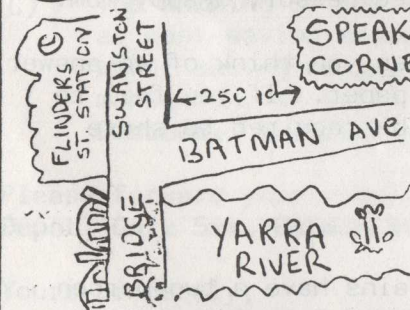 FLINDERS
ST. STATION
SWANSTON
STREET
SPEAK
CORNE
250 yd
BATMAN AVE
BRIDGE
YARRA
RIVER